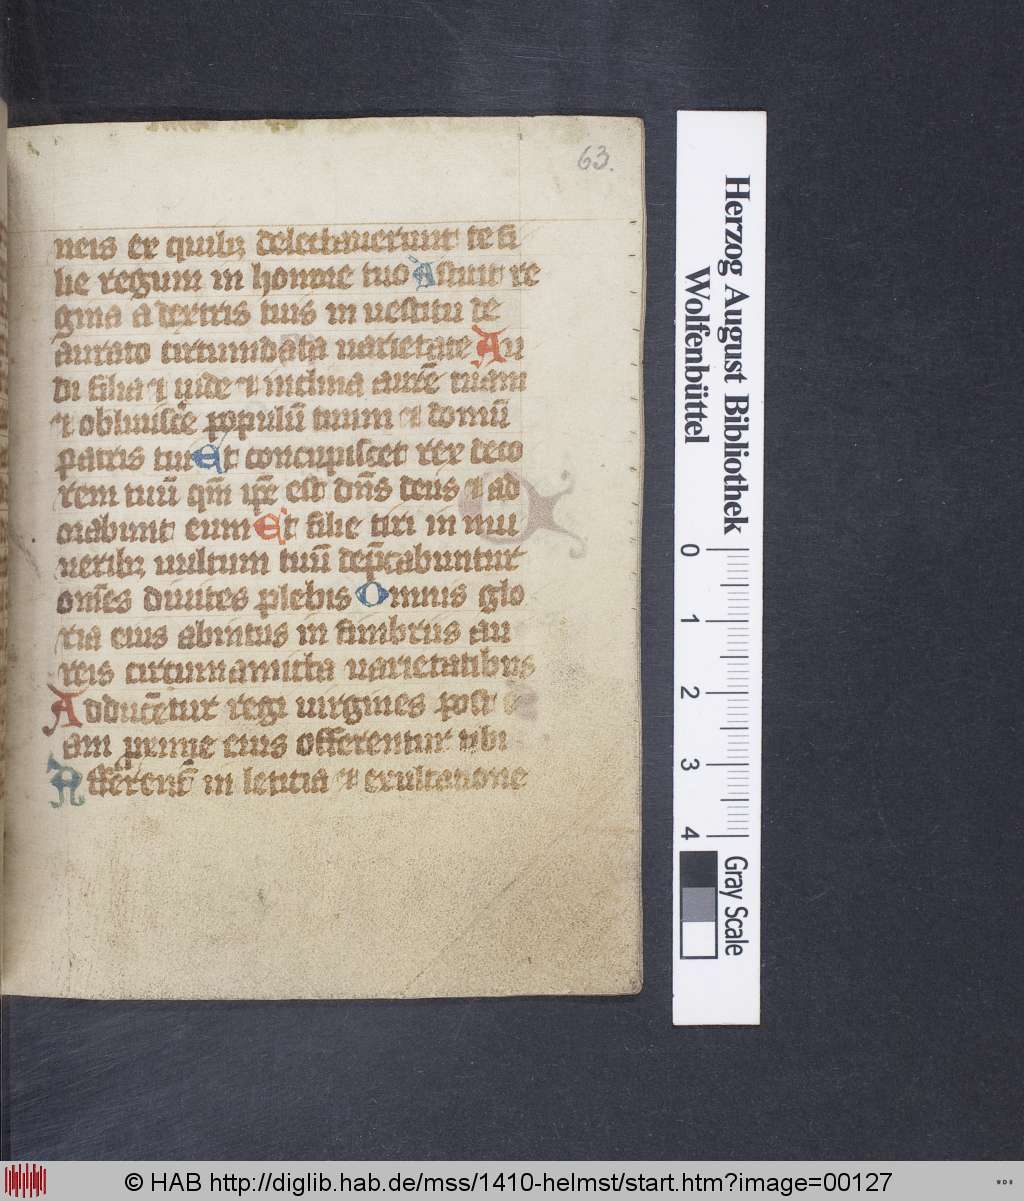 63.
neis ex quib; delectauerunt te fi
lie regum in honore tuo Astitit re
gina a dextris tuis in uestitu de
aurato circumdata uarietate Au
di filia ⁊ uide ⁊ inclina aurē tuam
⁊ obliuiscē populū tuum ⁊ domū
patris tui Et concupiscet rex deco
rem tuū qm̄ ip̄e est dn̄s deus ⁊ ad
orabunt eum Et filie tiri in mu
nerib; uultum tuū dep̄cabuntur
om̄es diuites plebis Omnis glo
ria eius abintus in fimbriis au
reis circumamicta uarietatibus
Adducētur regi uirgines post e
am proxime eius offerentur tibi
Afferent̄ in leticia ⁊ exultatione
Herzog August Bibliothek
Wolfenbüttel
0 1 2 3 4
Gray Scale
© HAB http://diglib.hab.de/mss/1410-helmst/start.htm?image=00127